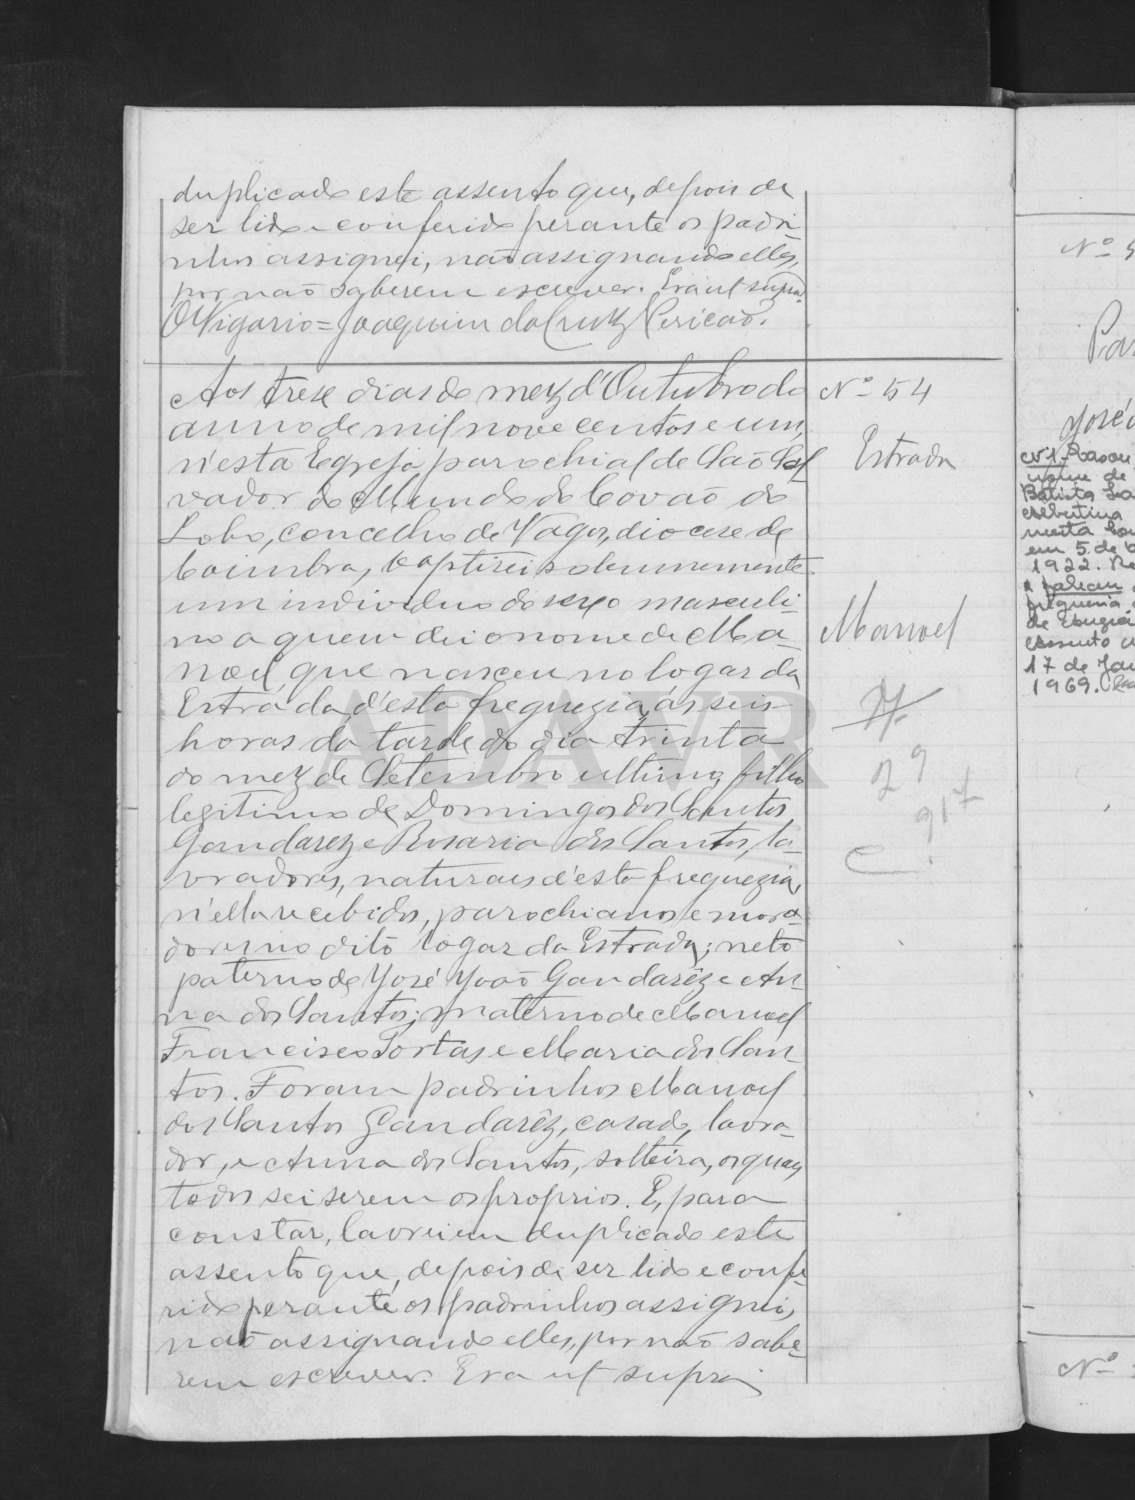 duplicado este assento que, depois de
ser lido e conferido perante os padri-
nhos assignei, não assignando elles,
por não saberem escrever. Era ut supra.
O Vigario = Joaquim da Cruz Pericão.
Aos trese dias do mez d'Outubro do
anno de mil nove centos e um,
n'esta Egreja parochial de São Sal-
vador do Mundo do Covão do
Lobo, concelho de Vagos, diocese de
Coimbra, baptisei solemnemente
um individuo do sexo masculi-
no a quem dei o nome de Ma-
noel que nasceu no logar da
Estrada, d'esta freguezia, ás seis
horas da tarde do dia trinta
do mez de Setembro ultimo, filho
legitimo de Domingos dos Santos
Gandarez e Rosaria dos Santos, la-
vradores, naturaes d'esta freguezia,
n'ella recebidos, parochianos e mora-
dores no dito logar da Estrada; neto
paterno de José João Gandarêz e An-
na dos Santos; materno de Manoel
Francisco Tortas e Maria dos San-
tos. Foram padrinhos Manoel
dos Santos Gandarêz, casado, lavra-
dor, e Anna dos Santos, solteira, os quaes
todos sei serem os proprios. E, para
constar, lavrei em duplicado este
assento que, depois de ser lido e confe-
rido perante os padrinhos assignei,
não assignando elles, por não sabe-
rem escrever. Era ut supra
Nº 54
Estrada
Manoel
29
917
C.
ADAVR
Nº 5
José
Nº 1
nome de
Batista
em 5 de
1922.
de
assento
17 de Jan
1969.
Nº